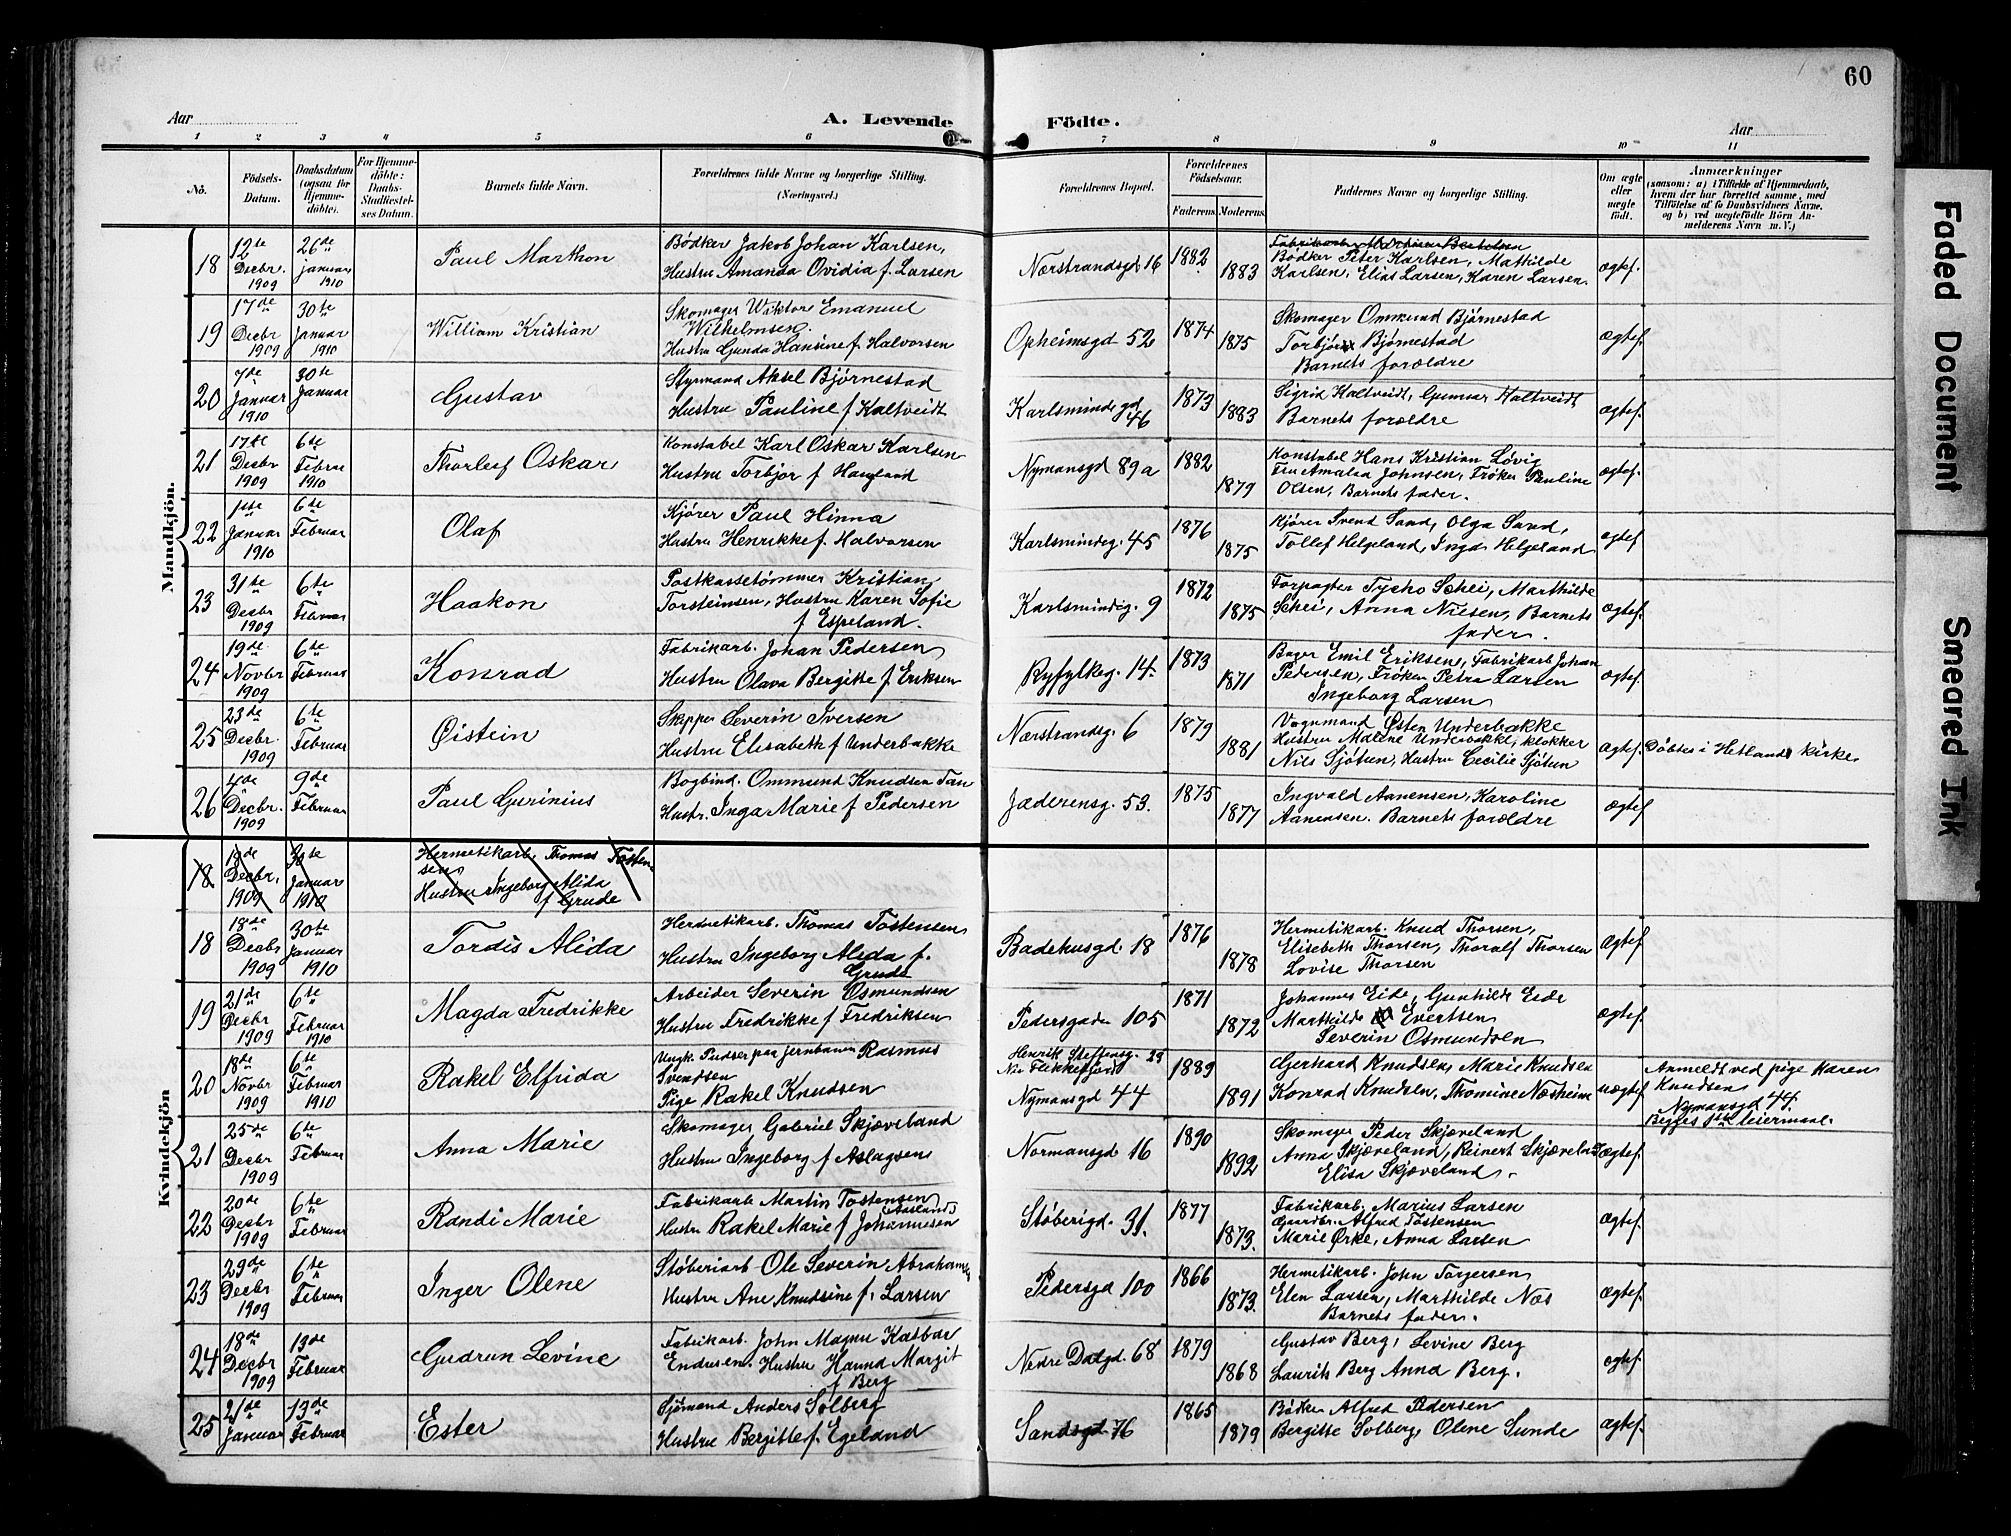 60
Aar
A. Levende Födte.
Aar
1 2 3 4 5 6 7 8 9 10 11
No.
Födsels-Datum.
Daabsdatum (ogsaa for Hjemme-döbte).
For Hjemme-döbte: Daabs-Stadfæstel-ses Datum.
Barnets fulde Navn.
Forældrenes fulde Navne og borgerlige Stilling. (Næringsvei.)
Forældrenes Bopæl.
Forældrenes Födselsaar.
Faderens. Moderens.
Faddernes Navne og borgerlige Stilling.
Om ægte eller uægte født.
Anmærkninger
(saasom: a) i Tilfælde af Hjemmedaab, hvem der har forrettet samme, med Tilföielse af to Daabsvidners Navne, og b) ved uægtefödte Börn An-melderens Navn m. V.)
Mandkjön.
18 12te Decbr. 1909 26de januar 1910 Paul Marthon
Bødker Jakob Johan Karlsen,
Hustru Amanda Ovidia f. Larsen
Nærstrandsgd 16 1882 1883
Bødker Peter Karlsen, Mathilde
Karlsen, Elias Larsen, Karen Larsen.
ægtef.
19 17de Decbr 1909 30te Januar 1910 William Kristian
Skomager Wiktor Emanuel
Wilhelmsen.
Hustru Gunda Hansine f. Halvorsen
Opheimsgd 52 1874 1875
Skomager Ommund Bjørnestad
Bjørnestad
Barnets forældre
ægtef.
20 7de Januar 1910 30te Januar Gustav
Styrmand Aksel Bjørnestad
Hustru Pauline f. Kaltveidt
Karlsminde gd 46 1873 1883
Sigrid Kaltveidt, Gunnar Kaltveidt
Barnets forældre
ægtef.
21 17de Decbr 1909 6te Februar 1910 Thorleif Oskar
Konstabel Karl Oskar Karlsen
Hustru Torbjør f Haugland
Nymansgd 89a 1882 1879
Konstabel Hans Kristian Løvig
Fru Amalia Johnsen, Frøken Pauline
Olsen, Barnets fader.
ægtef.
22 1ste Januar 1910 6te Februar Olaf
Kjører Paul Hinna
Hustru Henrikke f. Halvorsen
Karlsmindeg. 45 1876 1875
Kjører Svend Sand, Olga Sand,
Tollef Helgeland, Inga Helgeland
ægtef
23 31te Decbr 1909 6te Februar Haakon
Postkassetømmer Kristian
Torsteinsen, Hustru Karen Sofie
f Espeland.
Karlsmindeg. 9 1872 1875
Forpagter Tycho Schei, Marthilde
Schei, Anna Nielsen, Barnets
fader.
ægtef.
24 19de Novbr 1909 6te Februar Konrad
Fabrikarb. Johan Pedersen
Hustru Olava Bergitte f Eriksen
Ryfylkeg. 14. 1873 1871
Bager Emil Eriksen, Fabrikarb Johan
Pedersen, Frøken Petra Larsen
Ingeborg Larsen
ægtef.
25 23de Decbr. 1909 6te Februar Øistein
Skipper Severin Iversen
Hustru Elisabeth f Underbakke
Nærstrandsg. 6 1879 1881
Vognmand Østen Underbakke
Hustru Malene Underbakke, klokker
Nils Sjøtun, Hustru Cecilie Sjøtun
ægtef. Døbtes i Hetlands kirke
26 4de Decbr. 1909 9de Februar Paul Gurinius
Bogbind. Ommund Knudsen Tau
Hustr. Inga Marie f Pedersen
Jæderensg. 53. 1875 1877
Ingvald Aanensen, Karoline
Aanensen. Barnets forældre
ægtef
Kvindekjön
18 18de Decbr. 1909 30te Januar 1910
Hermetikarb. Thomas Tosten
sen
Hustru Ingeborg Alida
f Grude
18 18de Decbr 1909 30te Januar 1910 Tordis Alida
Hermetikarb. Thomas Tostensen
Hustru Ingeborg Alida f.
Grude
Badehusgd. 18 1876 1878
Hermetikarb. Knud Thorsen,
Elisebeth Thorsen, Thoralf Thorsen
Lovise Thorsen
Ægtef
19 21de Decbr 1909 6te Februar 1910 Magda Fredrikke
Arbeider Severin Osmundsen
Hustru Fredrikke f Fredriksen
Pedersgaden 105 1871 1872
Johannes Eide, Gunhilde Eide
Marthilde Evertsen
Severin Osmundsen
ægtef.
20 18de Novbr 1909 6te Februar 1910 Rakel Elfrida
Ungk. Pudser paa jernbanen Rasmus
Svendsen
Pige Rakel Knudsen
Henrik Steffensg. 23
Nu Flekkefjord
Nymansgd 44 1889 1891
Gerhard Knudsen, Marie Knudsen
Konrad Knudsen, Thomine Næsheim
uægtef
Anmeldt ved pige Karen
Knudsen
Nymansgd 44.
Begges 1ste leiermaal.
21 25de Decbr 1909 6te Februar Anna Marie
Skomager Gabriel Skjæveland
Hustru Ingeborg f Aslagsen
Normansgd 16 1890 1892
Skomager Peder Skjæveland
Anna Skjæveland, Reinert Skjæveland
Elisa Skjæveland.
Ægtef.
22 20de Decbr 1909 6te Februar Randi Marie
Fabrikarb Martin Tostensen
(Aasland)
Hustru Rakel Marie f Johannesen
Støberigd. 31. 1877 1873.
Fabrikarb. Marius Larsen
Gaardbr. Alfred Tostensen
Marie Ørke, Anna Larsen
Ægtef.
23 29de Decbr 1909 6te Februar Inger Olene
Støberiarb Ole Severin Abrahamsen
Hustru Ane Knudsine f. Larsen
Pedersgd 100 1866 1873.
Hermetikarb. John Torgersen
Elen Larsen, Marthilde Næs
Barnets fader.
ægtef.
24 18de Decbr 1909 13de Februar Gudrun Levine
Fabrikarb. John Magnu Kasbar
Endresen. Hustru Hanna Margit
f Berg
Nedre Dalgd. 68 1879 1868
Gustav Berg, Levine Berg
Laurits Berg Anna Berg.
ægtef.
25 21de Januar 13de Februar Ester
Sjømand Anders Solberg
Hustru Bergitte f. Egeland
Sandsgd 76 1865 1879
Bødker Alfred Pedersen
Bergitte Solberg, Olene Sunde
ægtef.
Faded Document
Smeared Ink